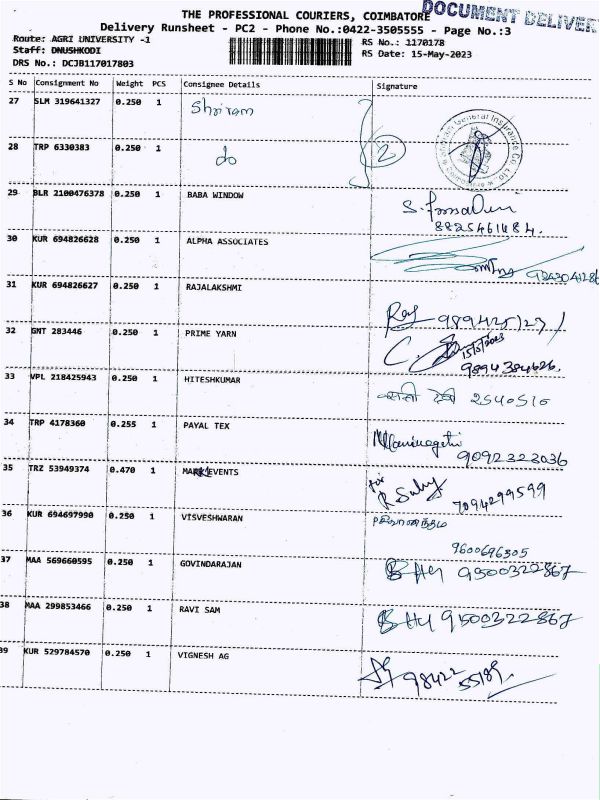 THE PROFESSIONAL COURIERS, COIMBATORE
DOCUMENT DELIVER
Delivery Runsheet - PC2 - Phone No.:0422-3505555 - Page No.:3
Route: AGRI UNIVERSITY -1
RS No.: 1170178
Staff: DNUSHKODI
RS Date: 15-May-2023
DRS No.: DCJB117017803
S No Consignment No Weight PCS Consignee Details Signature
27 SLM 319641327 0.250 1 Shriram
28 TRP 6330383 0.250 1 do 2
General Insurance Co. Ltd.
29 BLR 2100476378 0.250 1 BABA WINDOW
8825461484.
30 KUR 694826628 0.250 1 ALPHA ASSOCIATES
31 KUR 694826627 0.250 1 RAJALAKSHMI
Raj
32 GNT 283446 0.250 1 PRIME YARN
15/5/2023
9894384626.
33 VPL 218425943 0.250 1 HITESHKUMAR
2540510
34 TRP 4178360 0.255 1 PAYAL TEX
9092323036
35 TRZ 53949374 0.470 1 MARK EVENTS
for
7094299599
36 KUR 694697990 0.250 1 VISVESHWARAN
9600696305
37 MAA 569660595 0.250 1 GOVINDARAJAN
9500322867
38 MAA 299853466 0.250 1 RAVI SAM
9500322867
39 KUR 529784570 0.250 1 VIGNESH AG
98422 55189